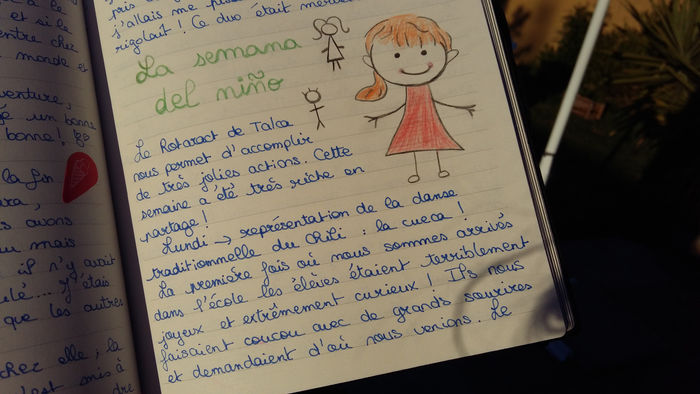 à le
et si le
entre chez
monde et
venture,
un bonne
bonne !
la fin
ara,
s avons
mais
il n'y avait
ulé.... J'étais
que les autres
chez elle ; la
s'est mis à
dre
pris
j'allais me
rigolait ! Ce duo était
La semana
del niño
Le Rotaract de Talca
nous permet d'accomplir
de très jolies actions. Cette
semaine a été très riche en
partage !
Lundi → représentation de la danse
traditionnelle du Chili : la cueca !
La première fois où nous sommes arrivés
dans l'école les élèves étaient terriblement
joyeux et extrêmement curieux ! Ils nous
faisaient coucou avec de grands sourires
et demandaient d'où nous venions. Le